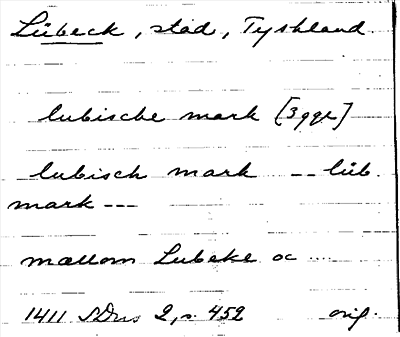 Lübeck, stad, Tyskland
lubische mark [3 ggr]
lubisch mark -- lüb.
mark ---
mællom Lubeke oc ....
1411 SDns 2, s. 452 orig.